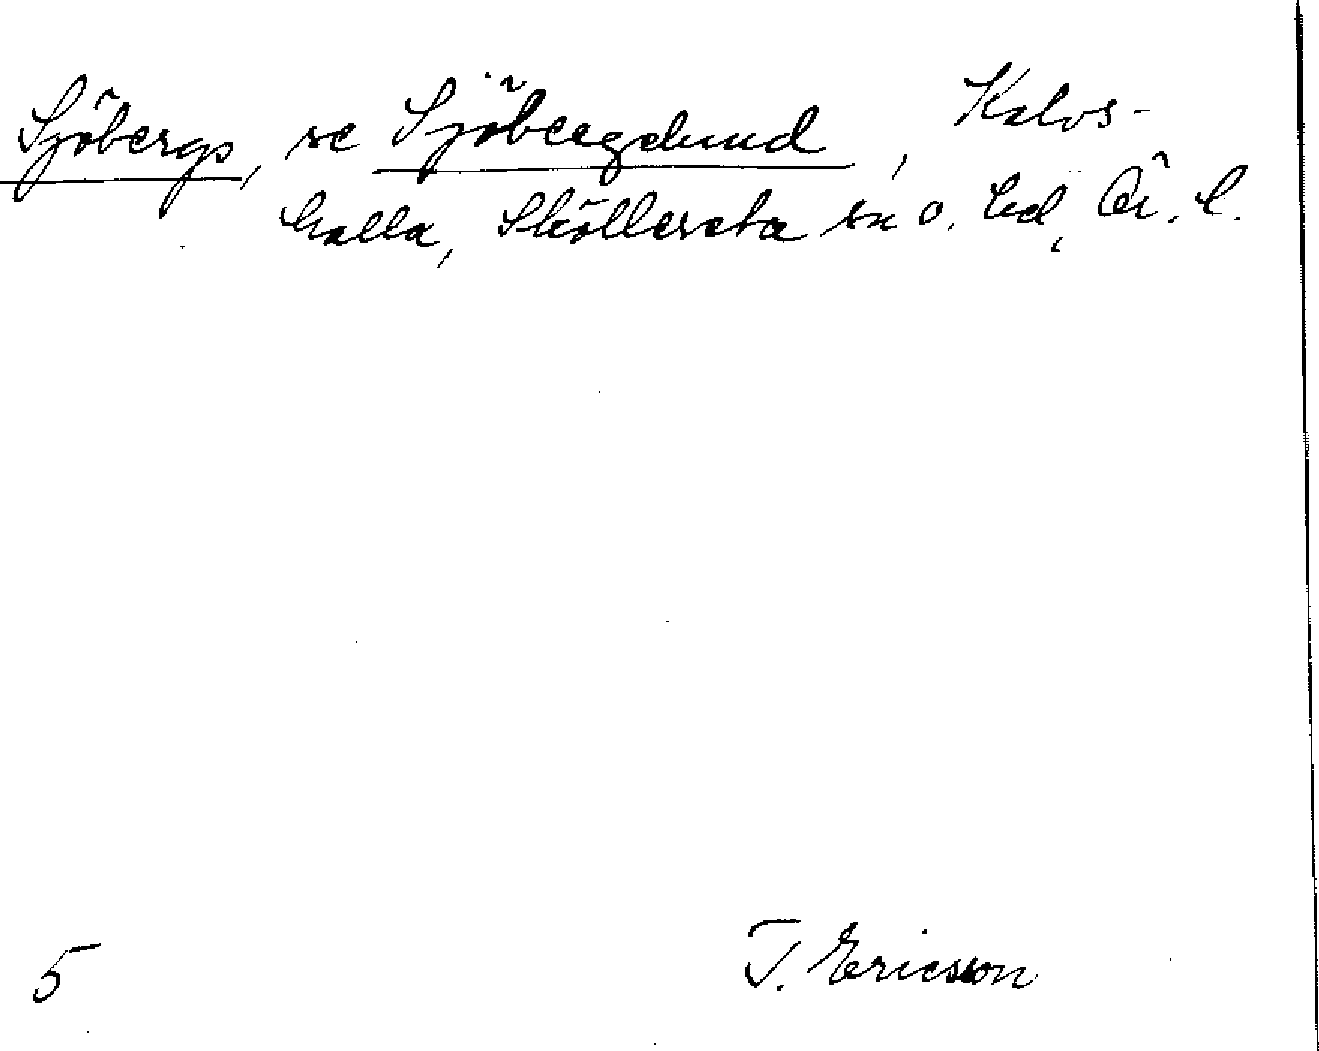 Sjöbergs, se Sjöbergslund, Kalvs-
halla, Sköllersta sn o. hd, Ör. l.
5
T. Ericsson